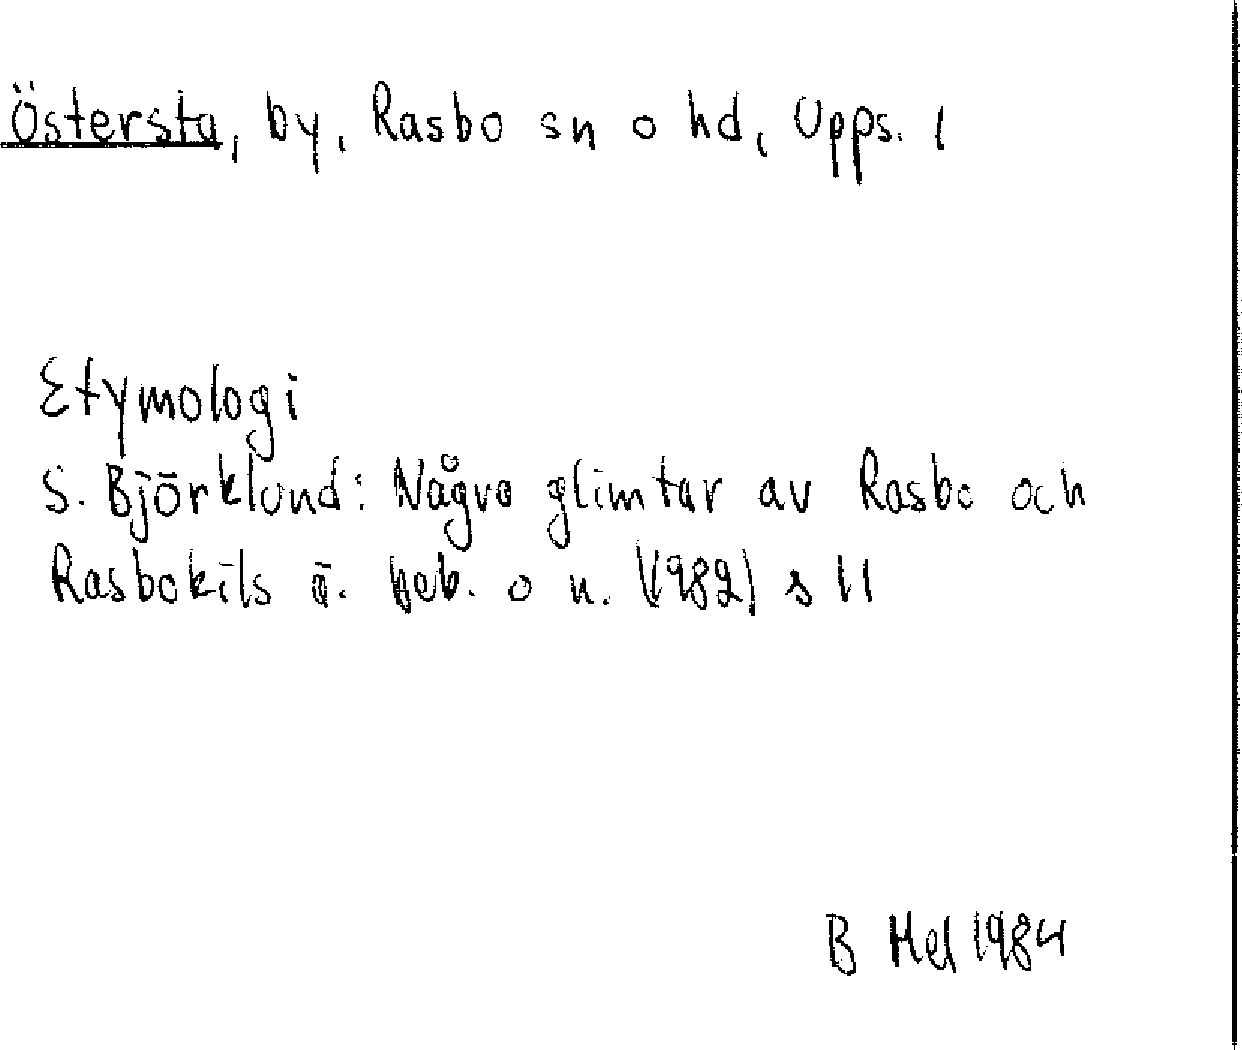 Östersta, by, Rasbo sn o hd, Upps. l
Etymologi
S. Björklund: Några glimtar av Rasbo och
Rasbokils ä. beb. o n. (1982) s 11
B Hel 1984